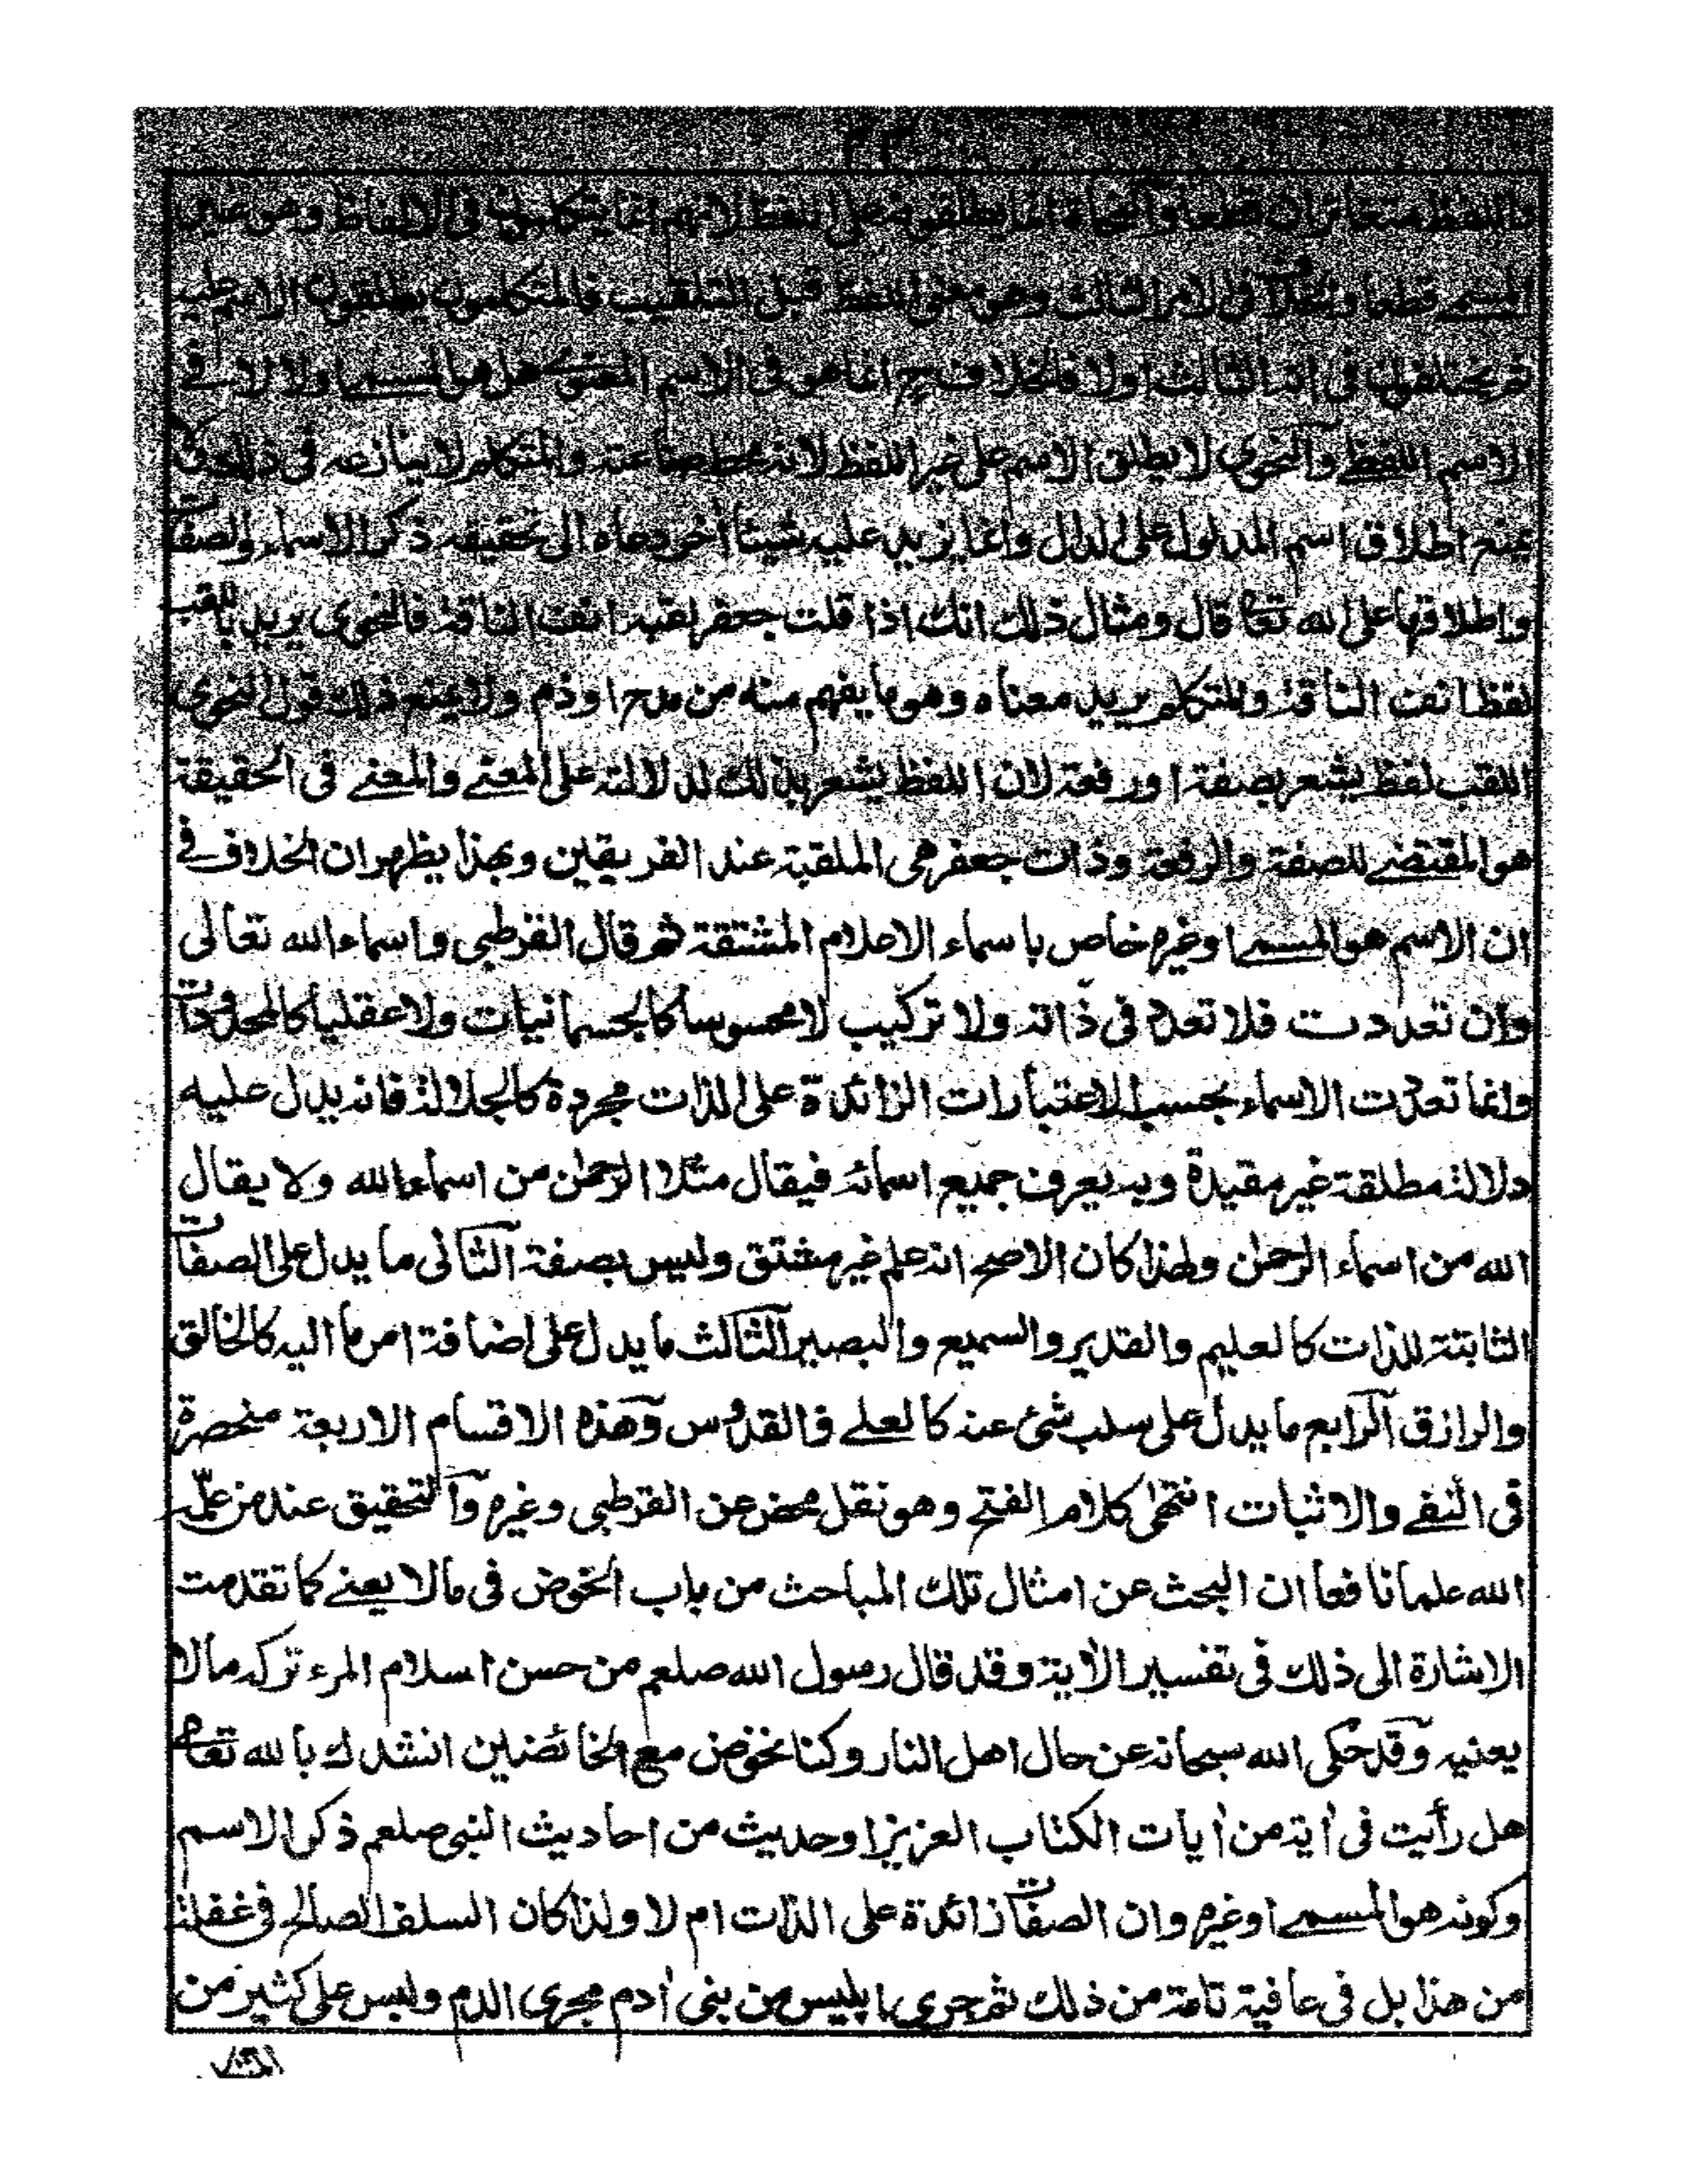 واللفظ متغائران قطعا والنحاة انما يطلقونه على اللفظ لانهم انما يتكلمون فى الالفاظ وهو غير
المسمے قطعا والخلاف فى الامر الثالث وهو معنى اللفظ قبل التلقيب فالمتكلمون يطلقون الاسم عليه
ثم يختلفون فى انه الثالث اولا فالخلاف ح انما هو فى الاسم المعنوى هل هو المسمے اولا لا فے
الاسم اللفظے والنحوى لا يطلق الاسم على غير اللفظ لانه محط صناعته والمتكلم لا ينازعه فى ذلك ولا
يمنع اطلاق اسم المدلول على الدال وانما يزيد عليه شيئا أخر دعاه الى تحقيقه ذكر الاسماء والصفات
واطلاقها على الله تعا قال ومثال ذلك انك اذا قلت جعفر لقبه انف الناقة فالنحوى يريد باللقب
لفظ انف الناقة والمتكلم يريد معناه وهو ما يفهم منه من مدح او ذم ولا يمنع ذلك قول النحوى
اللقب لفظ يشعر بصفة او رفعة لان اللفظ يشعر بذلك لدلالته على المعنے والمعنے فى الحقيقة
هو المقتضے للصفة والرفعة وذات جعفر هى الملقبة عند الفريقين وبهذا يظهر ان الخلاف فے
ان الاسم هو المسمے او غيره خاص باسماء الاعلام المشتقة ثم قال القرطبى واسماء الله تعالى
وان تعددت فلا تعدد فى ذاته ولا تركيب لا محسوسا كالجسمانيات ولا عقليا كالمحدودات
وانما تعددت الاسماء بحسب الاعتبارات الزائدة على الذات مجردة كالجلالة فانه يدل عليه
دلالة مطلقة غير مقيدة وبه يعرف جميع اسمائه فيقال مثلا الرحمٰن من اسماء الله ولا يقال
الله من اسماء الرحمٰن ولهذا كان الاصح انه علم غير مشتق وليس بصفة الثانى ما يدل على الصفات
الثابتة للذات كالعليم والقدير والسميع والبصير الثالث ما يدل على اضافة امر ما اليه كالخالق
والرازق الرابع ما يدل على سلب شئ عنه كالعلے فالقدوس وهذه الاقسام الاربعة منحصرة
فى النفے والاثبات انتهٰى كلام الفتح وهو نقل محض عن القرطبى وغيره والتحقيق عند من علمه
الله علما نافعا ان البحث عن امثال تلك المباحث من باب الخوض فى مالا يعنے كما تقدمت
الاشارة الى ذلك فى تفسير الاٰية وقد قال رسول الله صلعم من حسن اسلام المرء تركه مالا
يعنيه وقد حكى الله سبحانه عن حال اهل النار وكنا نخوض مع الخائضين انشدك بالله تعا
هل رأيت فى أية من أيات الكتاب العزيز او حديث من احاديث النبى صلعم ذكر الاسم
وكونه هو المسمے او غيره وان الصفات زائدة على الذات ام لا ولذا كان السلف الصالح فى غفلة
من هذا بل فى عافية تامة من ذلك ثم جرى ابليس من بنى أدم مجرى الدم ولبس على كثير من